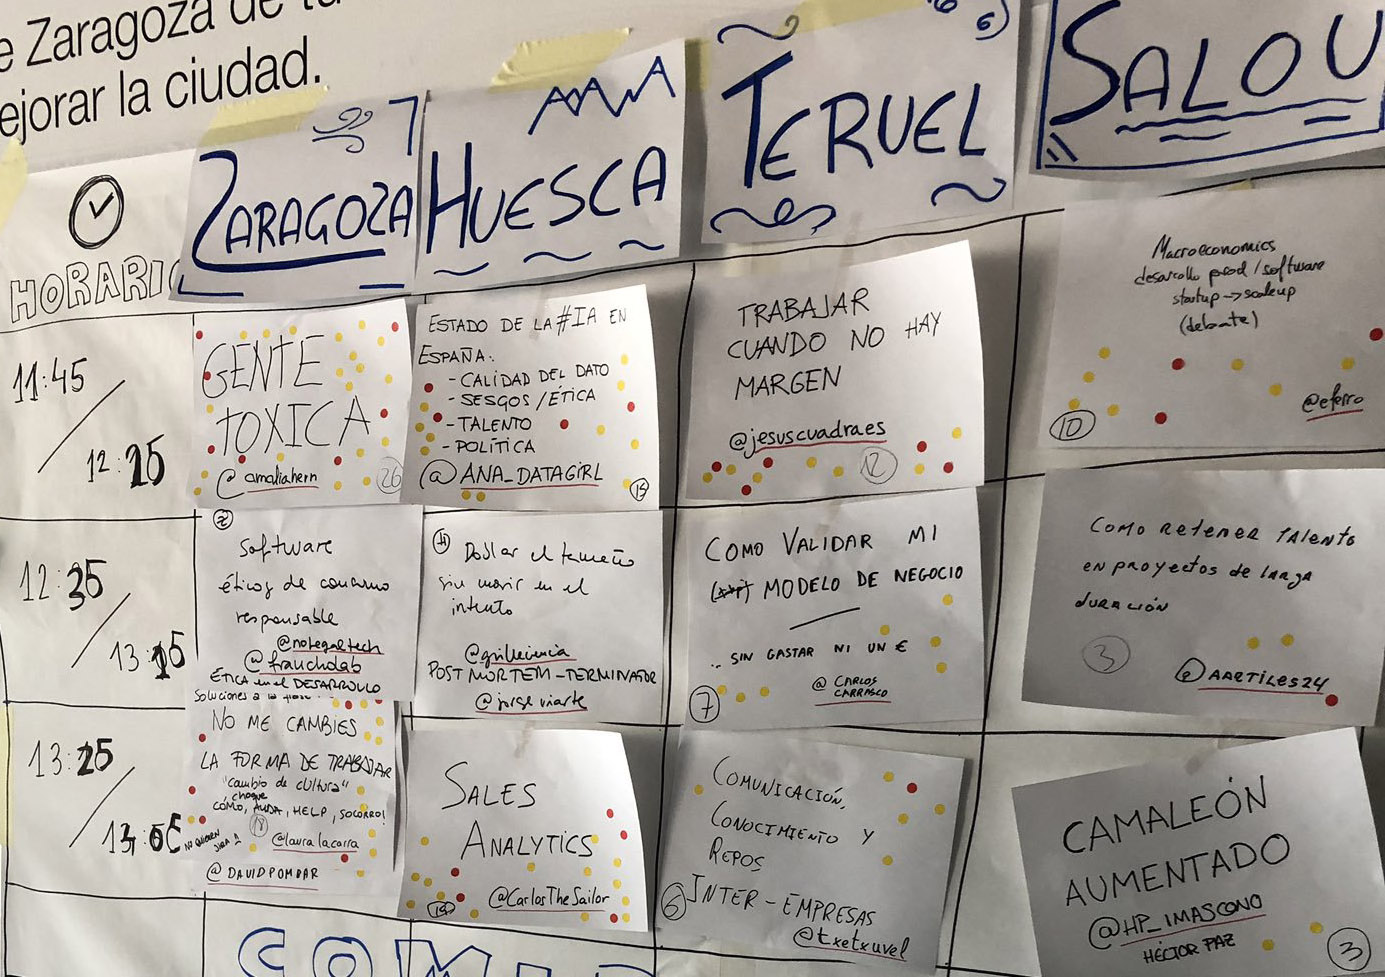 e Zaragoza de tu
ejorar la ciudad.
HORARIO
ZARAGOZA
HUESCA
TERUEL
SALOU
11:45
12:25
GENTE
TOXICA
@amaliahern
26
ESTADO DE LA #IA EN
ESPAÑA:
- CALIDAD DEL DATO
- SESGOS / ÉTICA
- TALENTO
- POLÍTICA
@ANA_DATAGIRL
15
TRABAJAR
CUANDO NO HAY
MARGEN
@jesuscuadraes
12
Macroeconomics
desarrollo prod / software
startup → scaleup
(debate)
@eferro
10
12:35
13:15
Software
éticos de consumo
responsable
@nolegaltech
@frauchdab
ÉTICA en el DESARROLLO
Soluciones a la
in el
intento
POST MORTEM - TERMINATOR
@jorge uriarte
COMO VALIDAR MI
MODELO DE NEGOCIO
.. SIN GASTAR NI UN €
@CARLOS
CARRASCO
7
COMO RETENER TALENTO
EN PROYECTOS DE LARGA
DURACIÓN
3
@AARTILES24
13:25
NO ME CAMBIES
LA FORMA DE TRABAJAR
"cambio de cultura"
choque
CÓMO, AYUDA, HELP, SOCORRO!
NO QUIEREN
@lauralacarra
@DAVIDPOMBAR
SALES
ANALYTICS
@CarlosTheSailor
COMUNICACIÓN,
CONOCIMIENTO Y
REPOS
INTER-EMPRESAS
@txetxuvel
6
CAMALEÓN
AUMENTADO
@HP_IMASCONO
HÉCTOR PAZ
3